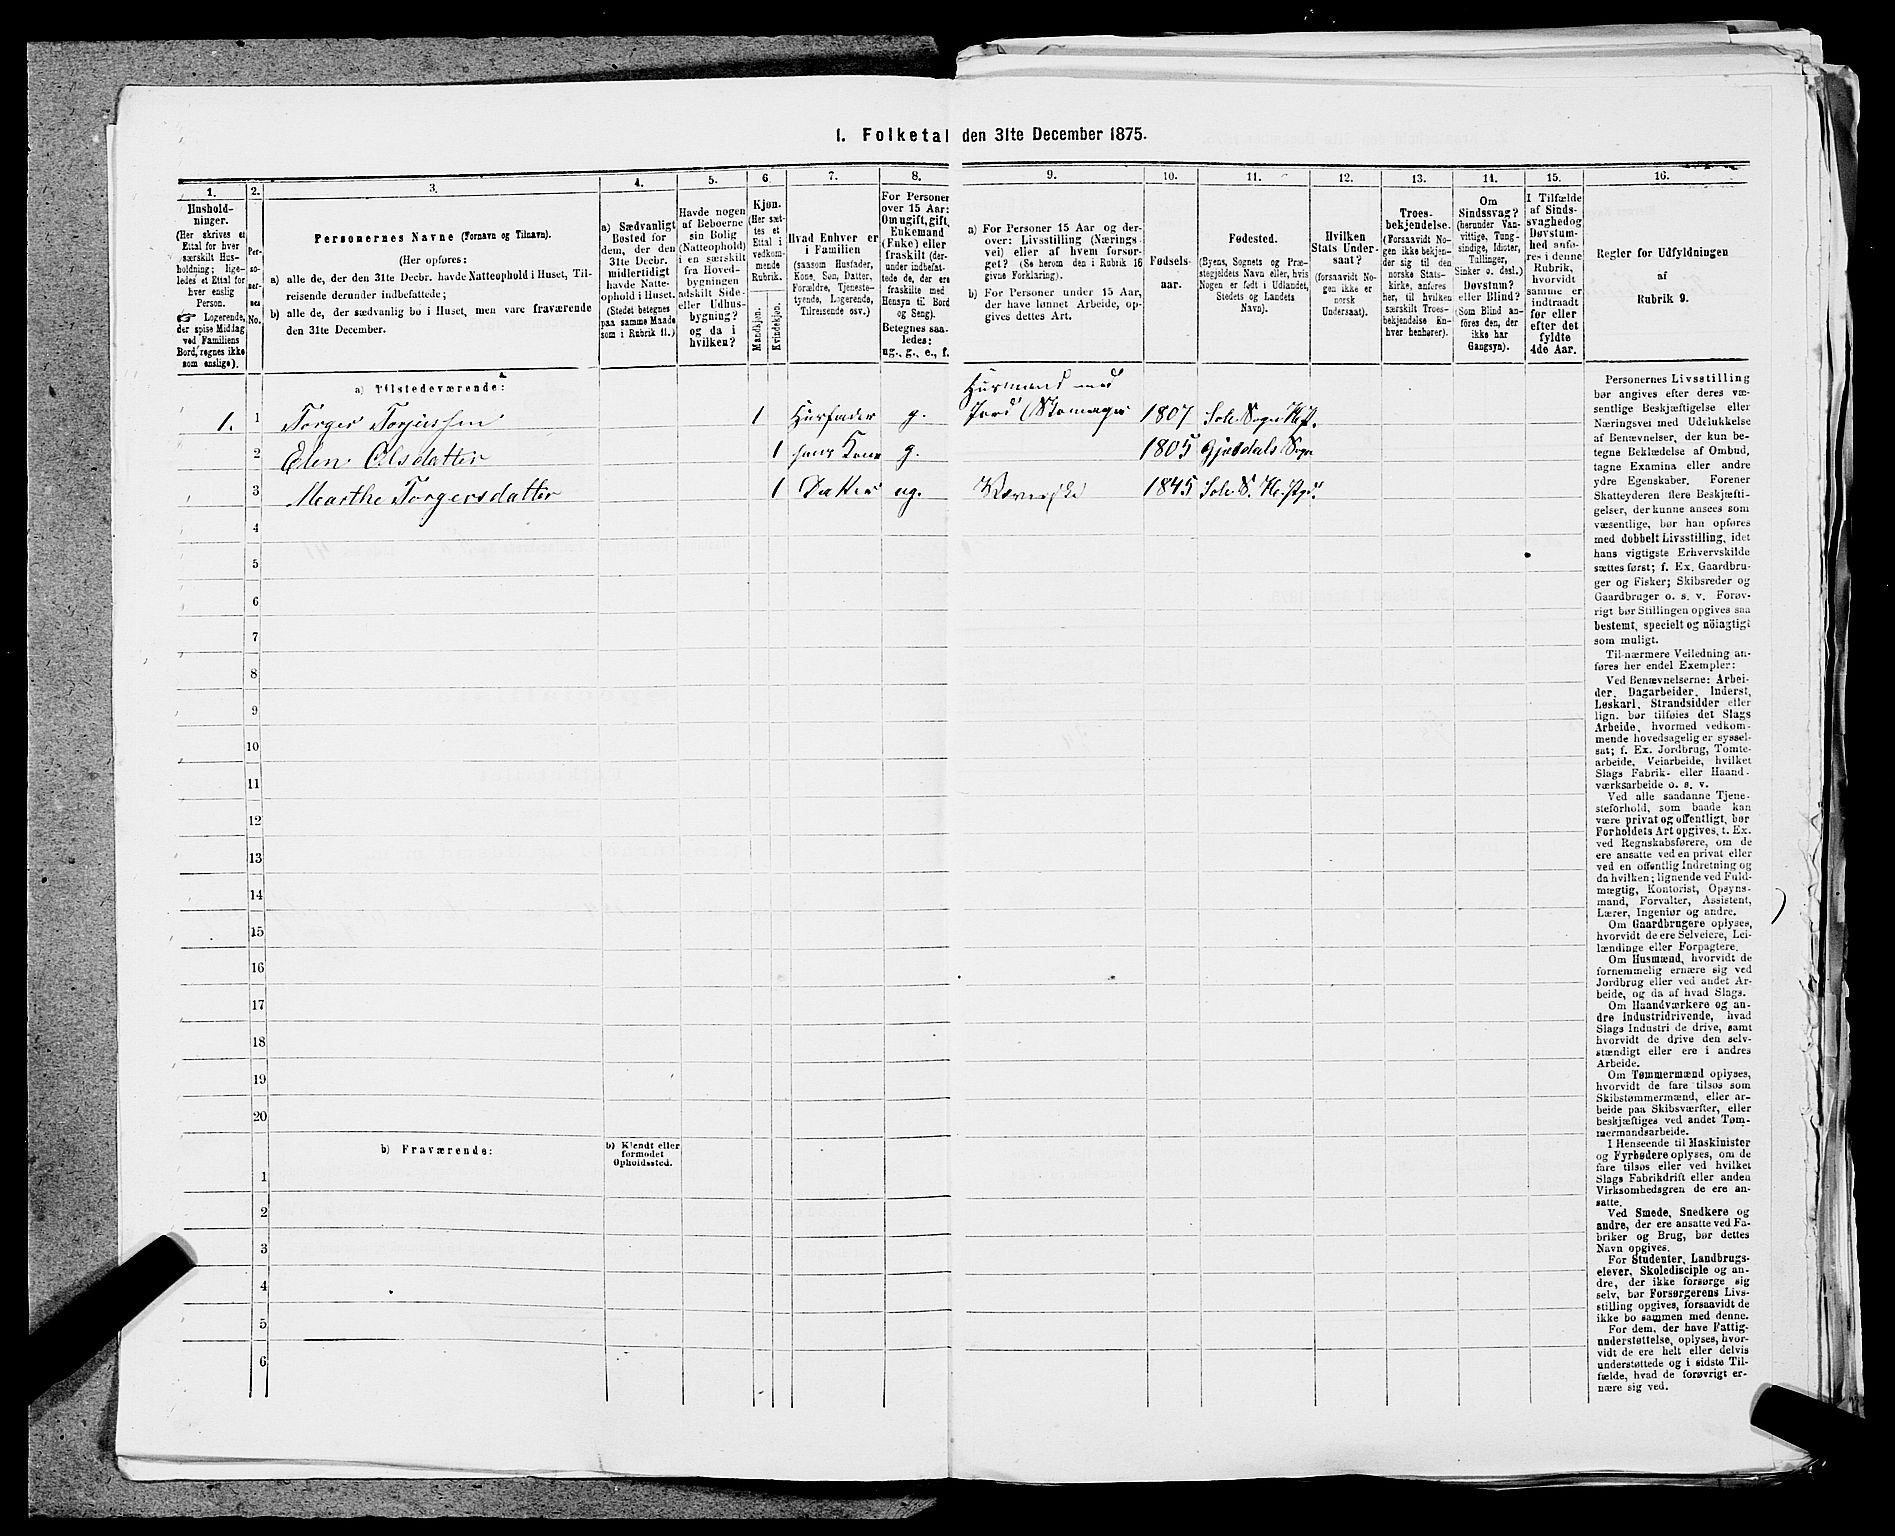 1. Folketal den 31te December 1875.
1.
2.
3.
4.
5.
6.
7.
8.
9.
10.
11.
12.
13.
14.
15.
16.
Hushold-
ninger.
(Her skrives et
Ettal for hver
særskilt Hus-
holdning; lige-
ledes et Ettal for
hver enslig
Person.
☞ Logerende,
der spise Middag
ved Familiens
Bord, regnes ikke
som enslige).
Per-
so-
ner-
nes
No.
Personernes Navne (Fornavn og Tilnavn).
(Her opføres:
a) alle de, der den 31te Decbr. havde Natteophold i Huset, Til-
reisende derunder indbefattede;
b) alle de, der sædvanlig bo i Huset, men vare fraværende
den 31te December.
a) Sædvanligt
Bosted for
dem, der den
31te Decbr.
midlertidigt
havde Natte-
ophold i Huset.
(Stedet betegnes
paa samme Maade
som i Rubrik 11.)
Havde nogen
af Beboerne
sin Bolig
(Natteophold)
i en særskilt
fra Hoved-
bygningen
adskilt Side-
eller Udhus-
bygning?
og da i
hvilken?
Kjøn.
(Her sæt-
tes et
Ettal i
vedkom-
mende
Rubrik.
Mandkjøn.
Kvindekjøn.
Hvad Enhver er
i Familien
(saasom Husfader,
Kone, Søn, Datter,
Forældre, Tjeneste-
tyende, Logerende,
Tilreisende osv.)
For Personer
over 15 Aar:
Om ugift, gift,
Enkemand
(Enke) eller
fraskilt (der-
under indbefat-
tede de, der ere
fraskilte med
Hensyn til Bord
og Seng).
Betegnes saa-
ledes:
ug., g., e., f.
a) For Personer 15 Aar og der-
over: Livsstilling (Nærings-
vei) eller af hvem forsør-
get? (Se herom den i Rubrik 16
givne Forklaring).
b) For Personer under 15 Aar,
der have lønnet Arbeide, op-
gives dettes Art.
Fødsels-
aar.
Fødested.
(Byens, Sognets og Præ-
stegjeldets Navn eller, hvis
Nogen er født i Udlandet,
Stedets og Landets
Navn).
Hvilken
Stats Under-
saat?
(forsaavidt No-
gen ikke er
norsk
Undersaat).
Troes-
bekjendelse.
(Forsaavidt No-
gen ikke bekjen-
der sig til den
norske Stats-
kirke, anføres
her, til hvilken
særskilt Troes-
bekjendelse En-
hver henhører).
Om
Sindssvag?
(herunder Van-
vittige, Tung-
sindige, Idioter,
Tullinger,
Sinker o. desl.)
Døvstum?
eller Blind?
(Som Blind an-
føres den, der
ikke har
Gangsyn).
I Tilfælde
af Sinds-
svaghed og
Døvstum-
hed anfø-
res i denne
Rubrik,
hvorvidt
samme er
indtraadt
før eller
efter det
fyldte
4de Aar.
Regler for Udfyldningen
af
Rubrik 9.
a) Tilstedeværende:
Husmand med
1. 1 Torger Torjussen 1 Husfader g. Jord 1807 Sole Sogn
2 Elen Olsdatter 1 hans Kone g. 1805 Gjesdals Sogn
3 Marthe Torgersdatter 1 Datter ug. Væverske 1845 Sole S.
4
5
6
7
8
9
10
11
12
13
14
15
16
17
18
19
20
b) Fraværende:
b) Kjendt eller
formodet
Opholdssted.
1
2
3
4
5
6
Personernes Livsstilling
bør angives efter deres væ-
sentlige Beskjæftigelse eller
Næringsvei med Udelukkelse
af Benævnelser, der kun be-
tegne Beklædelse af Ombud,
tagne Examina eller andre
ydre Egenskaber. Forener
Skatteyderen flere Beskjæfti-
gelser, der kunne ansees som
væsentlige, bør han opføres
med dobbelt Livsstilling, idet
hans vigtigste Erhvervskilde
sættes først; f. Ex. Gaardbru-
ger og Fisker; Skibsreder og
Gaardbruger o. s. v. Forøv-
rigt bør Stillingen opgives saa
bestemt, specielt og nöiagtigt
som muligt.
Til nærmere Veiledning an-
føres her endel Exempler:
Ved Benævnelserne: Arbei-
der, Dagarbeider, Inderst,
Løskarl, Strandsidder eller
lign. bør tilføies det Slags
Arbeide, hvormed vedkom-
mende hovedsagelig er syssel-
sat; f. Ex. Jordbrug, Tomte-
arbeide, Veiarbeide, hvilket
Slags Fabrik- eller Haand-
værksarbeide o. s. v.
Ved alle saadanne Tjene-
steforhold, som baade kan
være privat og offentligt, bør
Forholdets Art opgives, t. Ex.
ved Regnskabsførere, om de
ere ansatte ved en privat eller
ved en offentlig Indretning og
da hvilken; lignende ved Fuld-
mægtig, Kontorist, Opsyns-
mand, Forvalter, Assistent,
Lærer, Ingeniør og andre.
Om Gaardbrugere oplyses,
hvorvidt de ere Selveiere, Lei-
lændinge eller Forpagtere.
Om Husmænd, hvorvidt de
fornemmelig ernære sig ved
Jordbrug eller ved andet Ar-
beide, og da af hvad Slags.
Om Haandværkere og an-
dre Industridrivende, hvad
Slags Industri de drive, samt
hvorvidt de drive den selv-
stændigt eller ere i andres
Arbeide.
Om Tømmermænd oplyses,
hvorvidt de fare tilsøs som
Skibstømmermænd, eller ar-
beide paa Skibsværfter, eller
beskjæftiges ved andet Tøm-
mermandsarbeide.
I Henseende til Maskinister
og Fyrbødere oplyses, om de
fare tilsøs eller ved hvilket
Slags Fabrikdrift eller anden
Virksomhedsgren de ere an-
satte.
Ved Smede, Snedkere og
andre, der ere ansatte ved Fa-
briker og Brug, bør dettes
Navn opgives.
For Studenter, Landbrugs-
elever, Skoledisciple og an-
dre, der ikke forsørge sig
selv, bør Forsørgerens Livs-
stilling opgives, forsaavidt de
ikke bo sammen med denne.
For dem, der have Fattig-
understøttelse, oplyses, hvor-
vidt de ere helt eller delvis
understøttede og i sidste Til-
fælde, hvad de forøvrigt er-
nære sig ved.